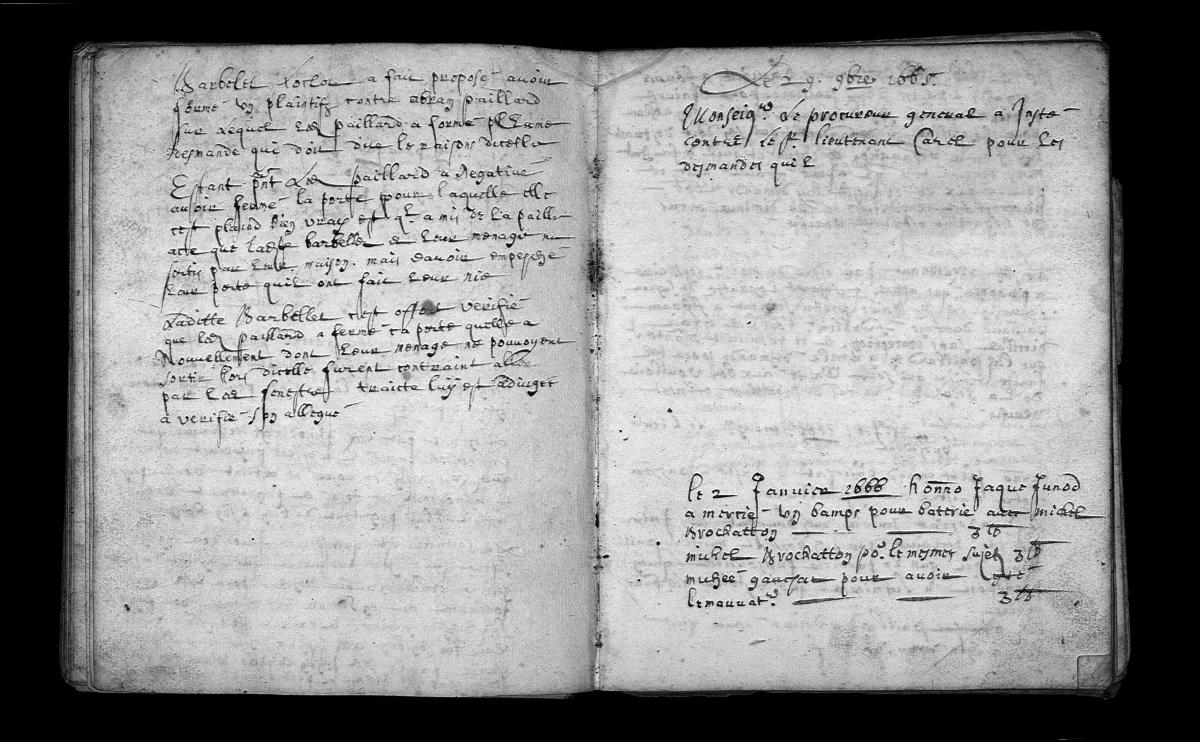 Barbelet a fait proposé avoir
formé un plaintif contre abram paillard
sur lequel led paillard a formé
desmande qui doit dire le raisons dicelle
Estant pnt Led paillard a Negativé
avoir fermé la porte pour laquelle elle
cest plaind bien vray est ql a mis de la paille
que ladte barbellet & leur menage ne
sortis par leur maison mais davoir empesché
leur porte quil ont fait leur nie
Laditte Barbellet cest offert verifié
que led paillard a fermé ca porte quelle a
Nouvellement dont leur menage ne pouvoyent
sortir hors dicelle furent contraint aller
par les fenestres traicte luy est adiugée
a verifié son allegué
Le 29. 9bre 1665.
Monseigr. Le procureur general a Insté
contre le sr. lieutenant Carel pour les
desmandes quil
le 2 Janvier 1666 honno Jaque Junod
a mercié un bamps pour baterie avec michel
Brochatton 3 lb
michel Brochatton por. le mesmes sujet 3 lb
pour avoir
3 lb